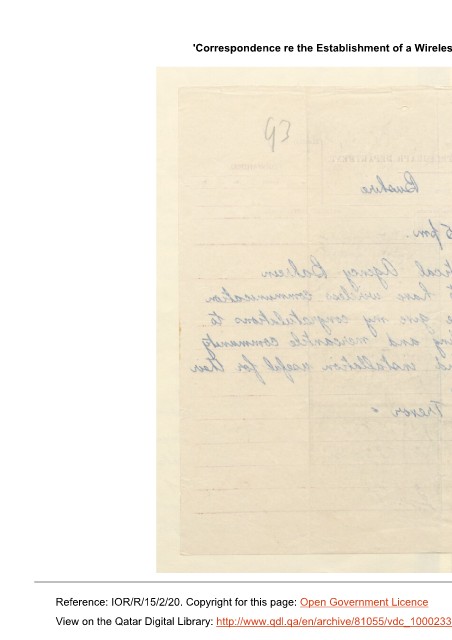 'Correspondence re the Establishment of a Wireles
93
Bushire
5 pm.
tical Agency Bahrein
have wireless communication
give my congratulations to
and mercantile community
installation useful for their
Trevor
Reference: IOR/R/15/2/20. Copyright for this page: Open Government Licence
View on the Qatar Digital Library: http://www.qdl.qa/en/archive/81055/vdc_1000233